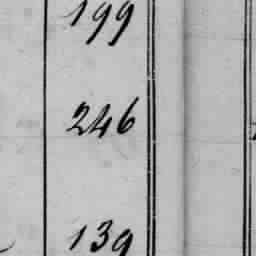 199
246
139